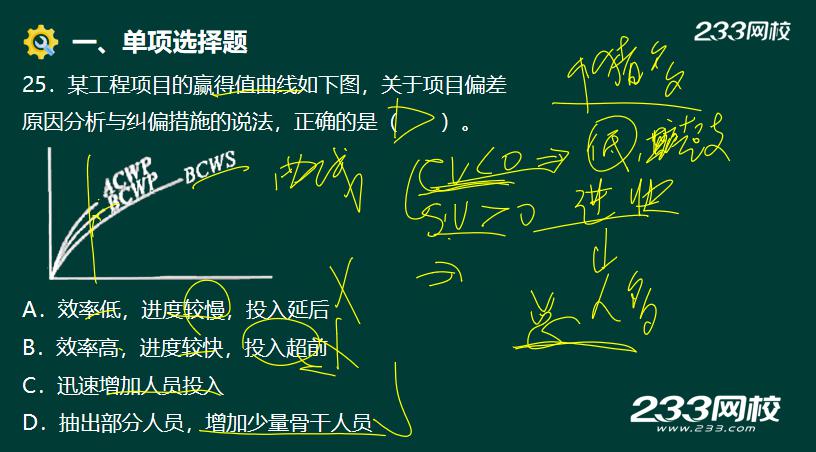 一、单项选择题
233网校
25. 某工程项目的赢得值曲线如下图，关于项目偏差
原因分析与纠偏措施的说法，正确的是（D）。
ACWP
BCWP
BCWS
曲线
CV<0 ⇒ 低，
SV>0 进快
人多
A. 效率低，进度较慢，投入延后
B. 效率高，进度较快，投入超前
C. 迅速增加人员投入
D. 抽出部分人员，增加少量骨干人员
233网校
www.233.com